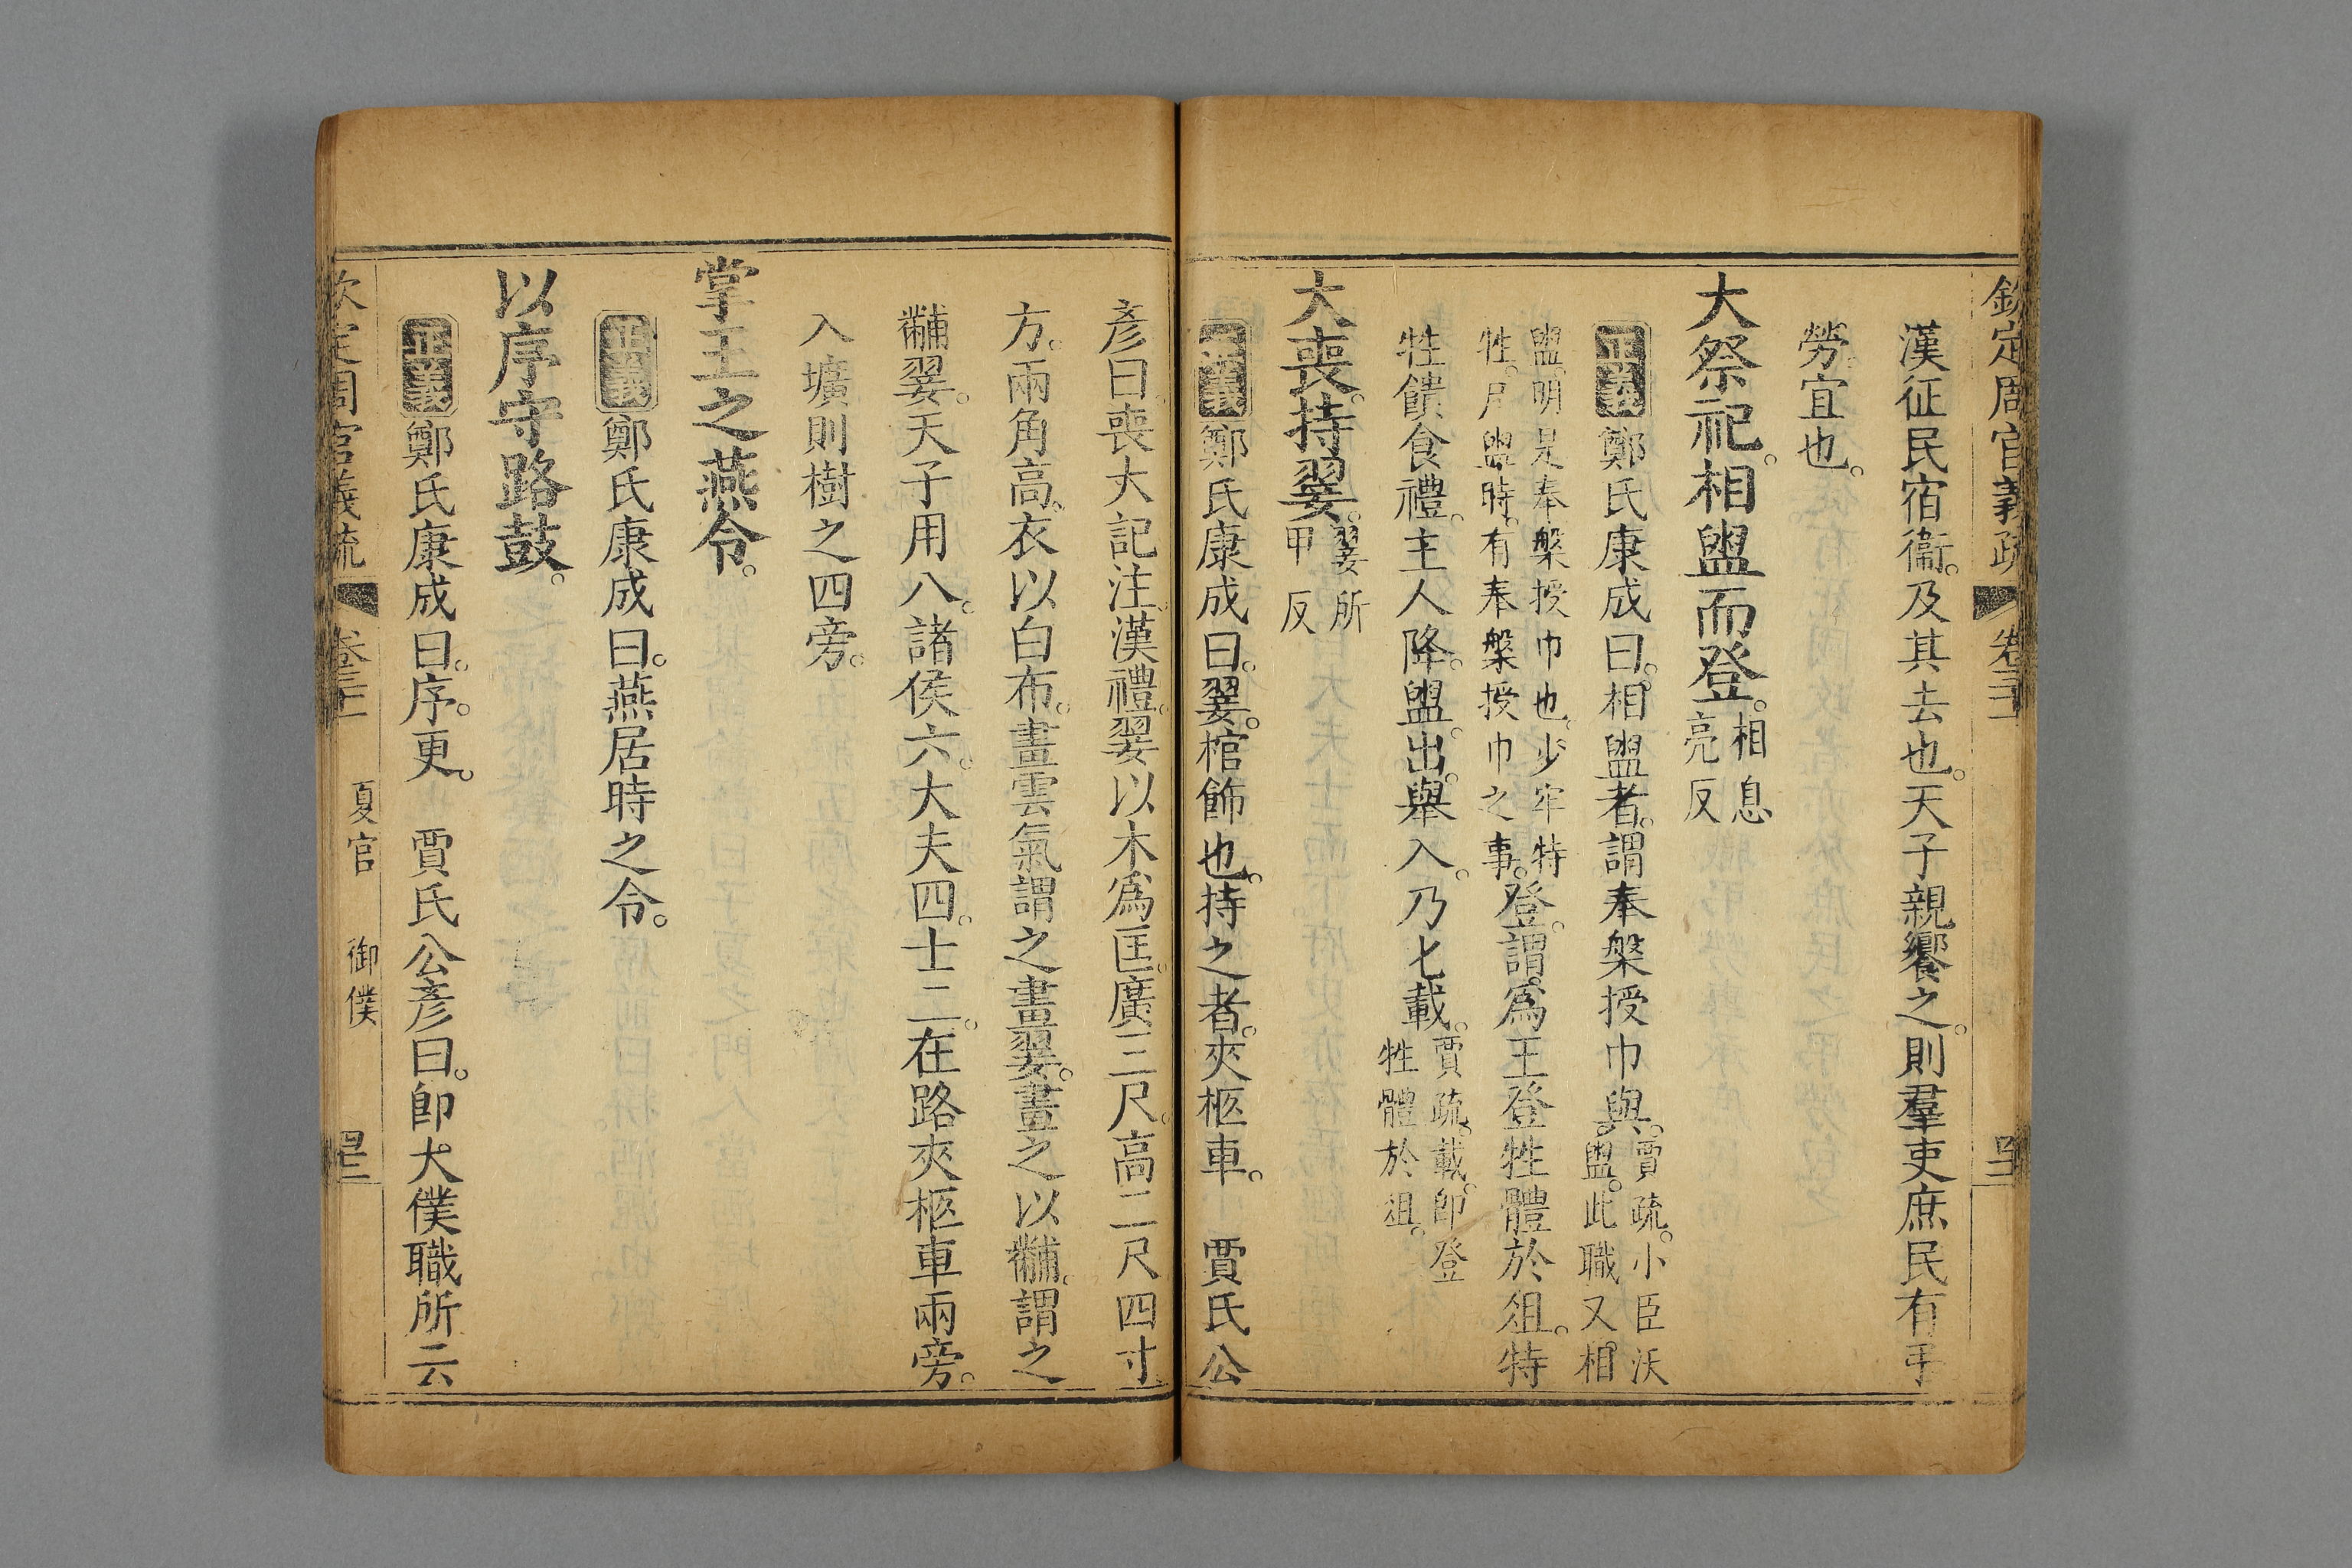 欽定周官義疏 卷三十二
漢征民宿衞。及其去也。天子親饗之。則羣吏庶民有
勞。宜也。
大祭祀。相盥而登。相息亮反
正義鄭氏康成曰。相盥者。謂奉槃授巾與。賈疏。小臣沃盥。此職又相
盥。明是奉槃授巾也。少牢特牲。尸盥時。有奉槃授巾之事。登。謂爲王登牲體於俎。特
牲饋食禮。主人降。盥。出。舉入。乃匕載。賈疏。載。即登牲體於俎。
大喪。持翣。翣所甲反
正義鄭氏康成曰。翣。棺飾也。持之者。夾柩車。 賈氏公
彥曰。喪大記注。漢禮。翣以木爲匡。廣三尺。高二尺四寸。
方。兩角高。衣以白布。畫雲氣謂之畫翣。畫之以黼。謂之
黼翣。天子用八。諸侯六。大夫四。士二。在路夾柩車兩旁。
入壙則樹之四旁。
掌王之燕令。
正義鄭氏康成曰。燕居時之令。
以序守路鼓。
正義鄭氏康成曰。序。更。 賈氏公彥曰。卽大僕職所云
欽定周官義疏 卷三十二 夏官 御僕